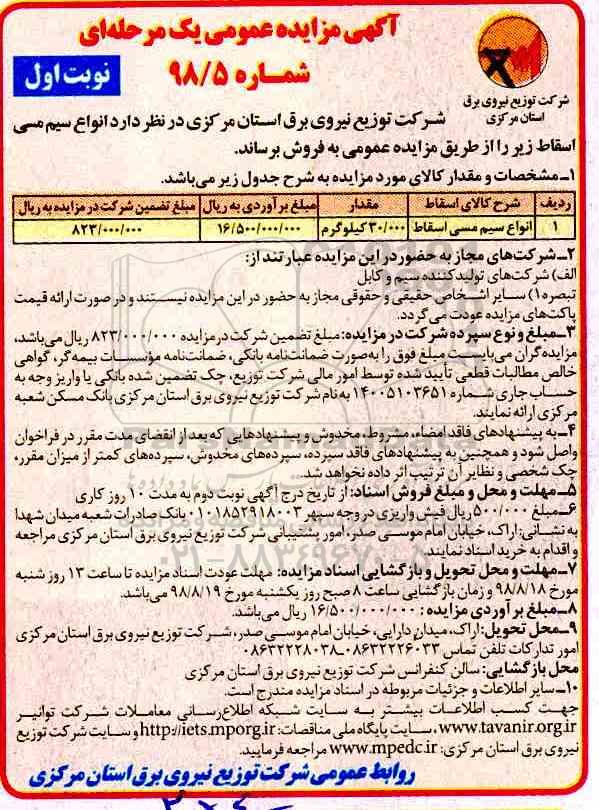 آگهی مزایده عمومی یک مرحله‌ای
شماره ۹۸/۵
نوبت اول
شرکت توزیع نیروی برق
استان مرکزی
شرکت توزیع نیروی برق استان مرکزی در نظر دارد انواع سیم مسی
اسقاط زیر را از طریق مزایده عمومی به فروش برساند.
۱ـ مشخصات و مقدار کالای مورد مزایده به شرح جدول زیر می‌باشد.
ردیف شرح کالای اسقاط مقدار مبلغ برآوردی به ریال مبلغ تضمین شرکت در مزایده به ریال
۱ انواع سیم مسی اسقاط ۳۰/۰۰۰ کیلوگرم ۱۶/۵۰۰/۰۰۰/۰۰۰ ۸۲۳/۰۰۰/۰۰۰
۲ـ شرکت‌های مجاز به حضور در این مزایده عبارتند از:
الف) شرکت‌های تولیدکننده سیم و کابل
تبصره ۱) سایر اشخاص حقیقی و حقوقی مجاز به حضور در این مزایده نیستند و در صورت ارائه قیمت
پاکت‌های مزایده عودت می‌گردد.
۳ـ مبلغ و نوع سپرده شرکت در مزایده: مبلغ تضمین شرکت در مزایده ۸۲۳/۰۰۰/۰۰۰ ریال می‌باشد،
مزایده‌گران می‌بایست مبلغ فوق را به‌صورت ضمانت‌نامه بانکی، ضمانت‌نامه مؤسسات بیمه‌گر، گواهی
خالص مطالبات قطعی تأیید شده توسط امور مالی شرکت توزیع، چک تضمین شده بانکی یا واریز وجه به
حساب جاری شماره ۱۴۰۰۵۱۰۳۶۵۱ به نام شرکت توزیع نیروی برق استان مرکزی بانک مسکن شعبه
مرکزی ارائه نمایند.
۴ـ به پیشنهادهای فاقد امضاء، مشروط، مخدوش و پیشنهادهایی که بعد از انقضای مدت مقرر در فراخوان
واصل شود و همچنین به پیشنهادهای فاقد سپرده، سپرده‌های مخدوش، سپرده‌های کمتر از میزان مقرر،
چک شخصی و نظایر آن ترتیب اثر داده نخواهد شد.
۵ـ مهلت و محل و مبلغ فروش اسناد: از تاریخ درج آگهی نوبت دوم به مدت ۱۰ روز کاری
۶ـ مبلغ ۵۰۰/۰۰۰ ریال فیش واریزی در وجه سپهر ۰۱۰۱۸۵۲۹۱۸۰۰۳ بانک صادرات شعبه میدان شهدا
به نشانی: اراک، خیابان امام موسی صدر، امور پشتیبانی شرکت توزیع نیروی برق استان مرکزی مراجعه
و اقدام به خرید اسناد نمایند.
۷ـ مهلت و محل تحویل و بازگشایی اسناد مزایده: مهلت عودت اسناد مزایده تا ساعت ۱۳ روز شنبه
مورخ ۹۸/۸/۱۸ و زمان بازگشایی ساعت ۸ صبح روز یکشنبه مورخ ۹۸/۸/۱۹ می‌باشد.
۸ـ مبلغ برآوردی مزایده: ۱۶/۵۰۰/۰۰۰/۰۰۰ ریال می‌باشد.
۹ـ محل تحویل: اراک، میدان دارایی، خیابان امام موسی صدر، شرکت توزیع نیروی برق استان مرکزی
امور تدارکات تلفن تماس ۰۸۶۳۲۲۲۶۰۳۳ـ۰۸۶۳۲۲۲۸۰۳۸
محل بازگشایی: سالن کنفرانس شرکت توزیع نیروی برق استان مرکزی
۱۰ـ سایر اطلاعات و جزئیات مربوطه در اسناد مزایده مندرج است.
جهت کسب اطلاعات بیشتر به سایت شبکه اطلاع‌رسانی معاملات شرکت توانیر
www.tavanir.org.ir، سایت پایگاه ملی مناقصات: http://iets.mporg.ir و سایت شرکت توزیع
نیروی برق استان مرکزی: www.mpedc.ir مراجعه فرمایید.
روابط عمومی شرکت توزیع نیروی برق استان مرکزی